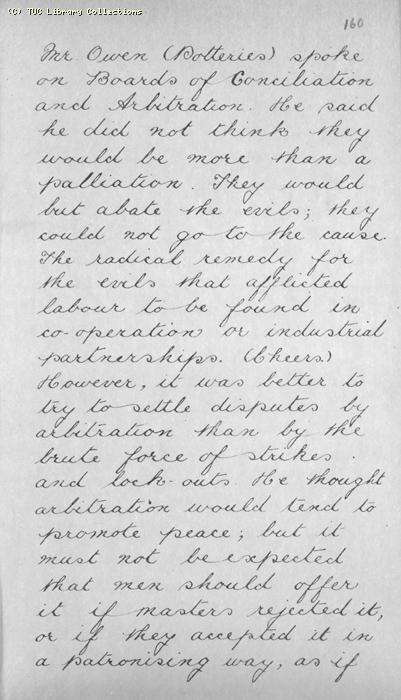 (C) TUC Library Collections
160
Mr. Owen (Potteries) spoke
on Boards of Conciliation
and Arbitration. He said
he did not think they
would be more than a
palliation. They would
but abate the evils; they
could not go to the cause.
The radical remedy for
the evils that afflicted
labour to be found in
co-operation or industrial
partnerships. (Cheers.)
However, it was better to
try to settle disputes by
arbitration than by the
brute force of strikes
and lock-outs. He thought
arbitration would tend to
promote peace; but it
must not be expected
that men should offer
it if masters rejected it,
or if they accepted it in
a patronising way, as if